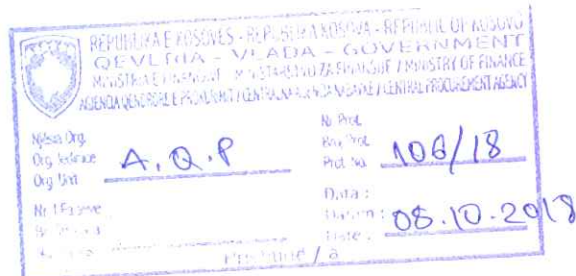 REPUBLIKA E KOSOVËS - REPUBLIKA KOSOVA - REPUBLIC OF KOSOVO
QEVERIA - VLADA - GOVERNMENT
MINISTRIA E FINANCAVE / MINISTARSTVO ZA FINANSIJE / MINISTRY OF FINANCE
AGJENCIA QENDRORE E PROKURIMIT / CENTRALNA AGENCIJA NABAVKE / CENTRAL PROCUREMENT AGENCY
Njësia Org.
Org. Jedinice
Org. Unit
A.Q.P
Nr. Prot.
Prot. No.
106/18
Data :
Datum :
Date :
08.10.2018
Prishtinë / a